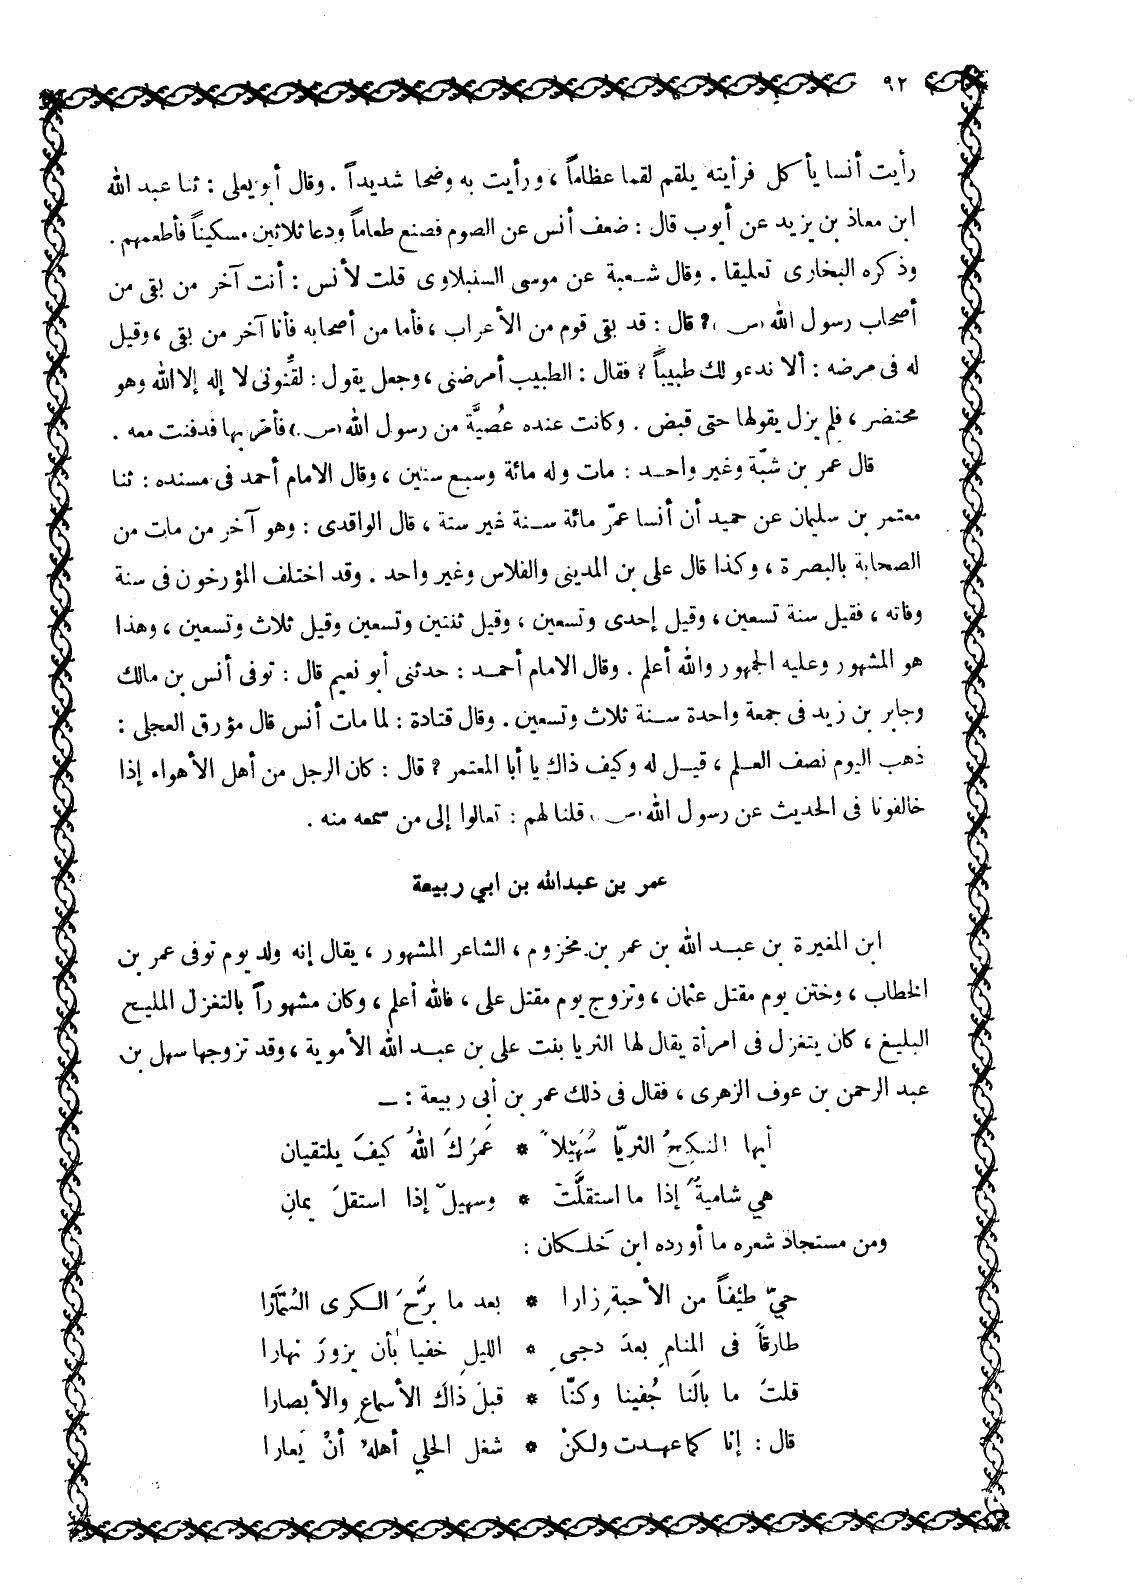 ٩٢
رأيت أنسا يأكل فرأيته يلقم لقما عظاماً ، ورأيت به وضحا شديداً . وقال أبو يعلى : ثنا عبد الله
ابن معاذ بن يزيد عن أيوب قال : ضعف أنس عن الصوم فصنع طعاماً ودعا ثلاثين مسكيناً فأطعمهم .
وذكره البخارى تعليقا . وقال شعبة عن موسى السنبلاوى قلت لأنس : أنت آخر من بقى من
أصحاب رسول الله (س) ؟ قال : قد بقى قوم من الأعراب ، فأما من أصحابه فأنا آخر من بقى ، وقيل
له فى مرضه : ألا ندعو لك طبيباً ؟ فقال : الطبيب أمرضنى ، وجعل يقول : لقِّنونى لا إله إلا الله وهو
محتضر ، فلم يزل يقولها حتى قبض . وكانت عنده عُصيَّة من رسول الله (س) فأمر بها فدفنت معه .
قال عمر بن شبّة وغير واحد : مات وله مائة وسبع سنين ، وقال الامام أحمد فى مسنده : ثنا
معتمر بن سليمان عن حميد أن أنسا عمّر مائة سنة غير سنة ، قال الواقدى : وهو آخر من مات من
الصحابة بالبصرة ، وكذا قال على بن المدينى والفلاس وغير واحد . وقد اختلف المؤرخون فى سنة
وفاته ، فقيل سنة تسعين ، وقيل إحدى وتسعين ، وقيل ثنتين وتسعين وقيل ثلاث وتسعين ، وهذا
هو المشهور وعليه الجمهور والله أعلم . وقال الامام أحمد : حدثنى أبو نعيم قال : توفى أنس بن مالك
وجابر بن زيد فى جمعة واحدة سنة ثلاث وتسعين . وقال قتادة : لما مات أنس قال مؤرق العجلى :
ذهب اليوم نصف العلم ، قيل له وكيف ذاك يا أبا المعتمر ؟ قال : كان الرجل من أهل الأهواء إذا
خالفونا فى الحديث عن رسول الله (س) قلنا لهم : تعالوا إلى من سمعه منه .
عمر بن عبدالله بن ابي ربيعة
ابن المغيرة بن عبد الله بن عمر بن مخزوم ، الشاعر المشهور ، يقال إنه ولد يوم توفى عمر بن
الخطاب ، وختن يوم مقتل عثمان ، وتزوج يوم مقتل على ، فالله أعلم ، وكان مشهوراً بالتغزل المليح
البليغ ، كان يتغزل فى امرأة يقال لها الثريا بنت على بن عبد الله الأموية ، وقد تزوجها سهل بن
عبد الرحمن بن عوف الزهرى ، فقال فى ذلك عمر بن أبى ربيعة : ــ
أيها المنكحُ الثريّا سُهَيْلاً * عَمرَكَ اللهُ كيفَ يلتقيان
هي شاميةٌ إذا ما استقلَّت * وسهيلٌ إذا استقلَ يمانِ
ومن مستجاد شعره ما أورده ابن خَلكان :
حيّ طيْفاً من الأحبةِ زارا * بعد ما برَّحَ الكرى السُمّارا
طارقاً فى المنامِ بعدَ دجى * الليلِ خفيا بأن يزورَ نهارا
قلتُ ما بالَنا جُفينا وكنّا * قبلَ ذَاكَ الأسماعِ والأبصارا
قال : إنا كما عهدت ولكنْ * شغل الحلي أهلهُ أنْ يَعارا